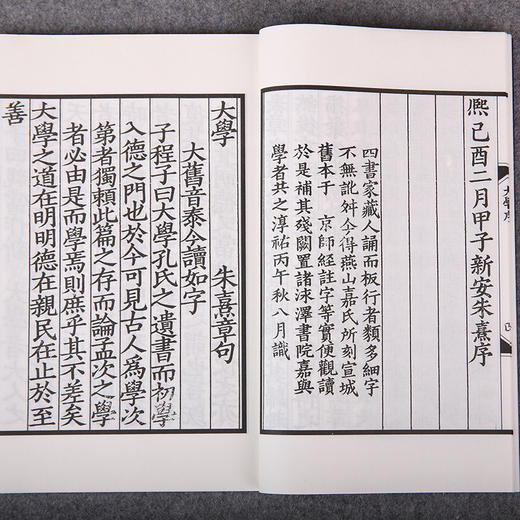 熙己酉二月甲子新安朱熹序
四書家藏人誦而板行者類多細字
不無訛舛今得燕山嘉氏所刻宣城
舊本于 京師經註字等實便觀讀
於是補其殘闕置諸涑澤書院嘉與
學者共之淳祐丙午秋八月識
大學 朱熹章句
大舊音泰今讀如字
子程子曰大學孔氏之遺書而初學
入德之門也於今可見古人爲學次
第者獨賴此篇之存而論孟次之學
者必由是而學焉則庶乎其不差矣
大學之道在明明德在親民在止於至
善